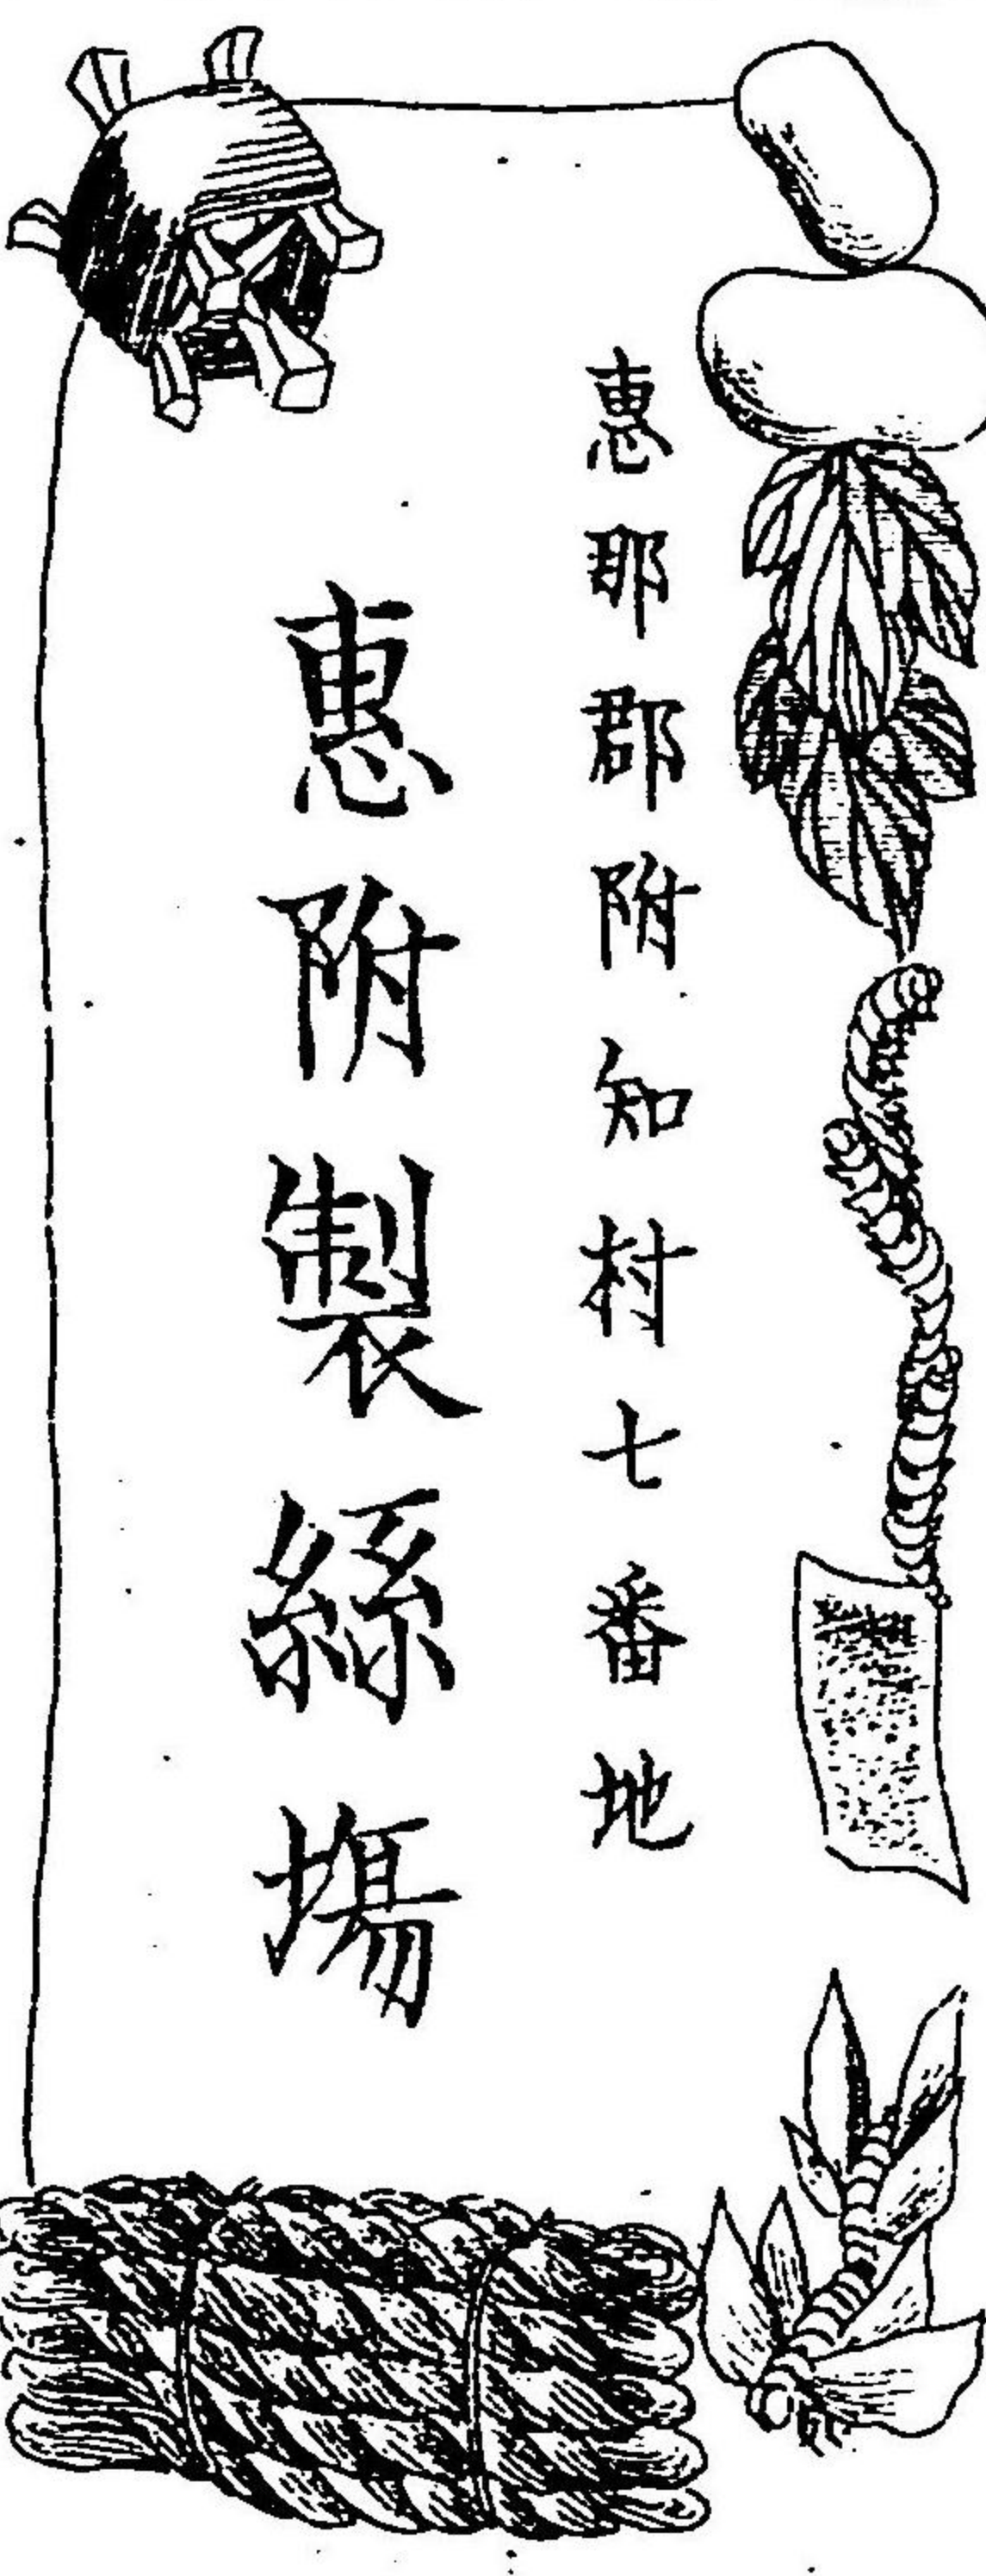 惠那郡附知村七番地
惠附製絲塲